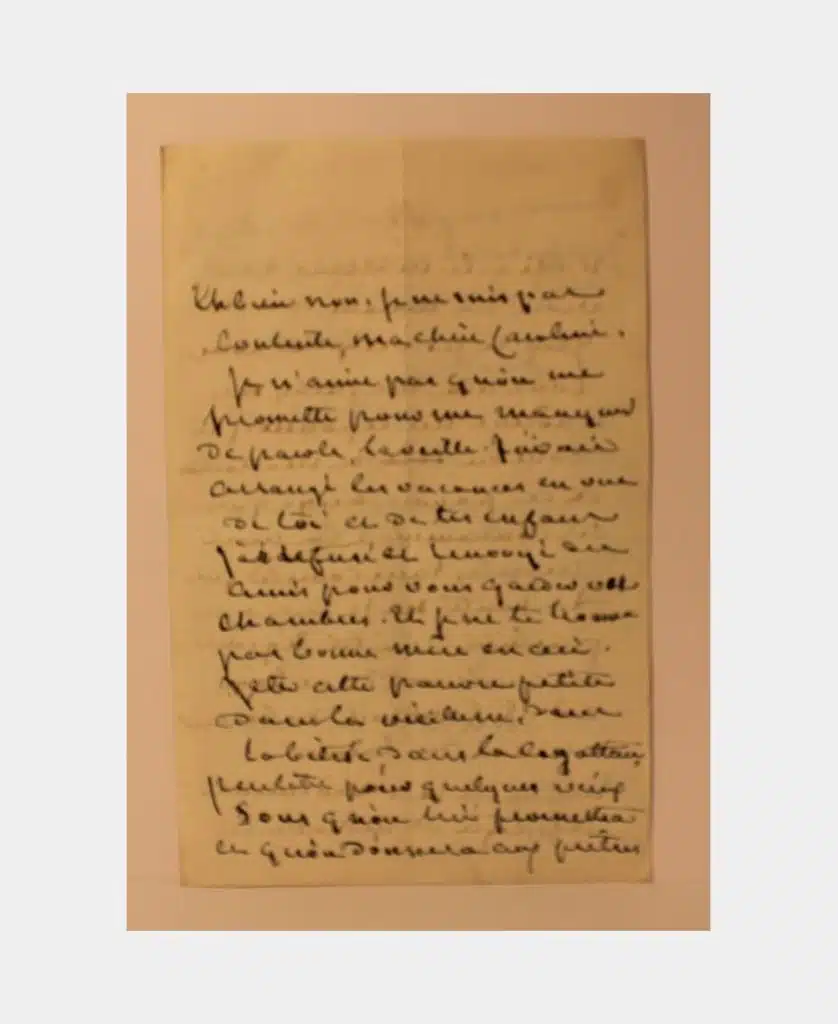 Eh bien non, je ne suis pas
contente, ma chère Caroline.
Je n'aime pas qu'on me
promette pour me manquer
de parole, la veille. J'avais
arrangé les vacances en vue
de toi et de tes enfans
J'ai refusé et renvoyé des
amis pour vous garder vos
chambres. Et je ne te trouve
pas bonne mère en ceci.
Jeter cette pauvre petite
dans la vieillesse, dans
la bêtise, dans la
peutêtre pour quelques
sous qu'on lui promettra
et qu'on donnera aux prêtres